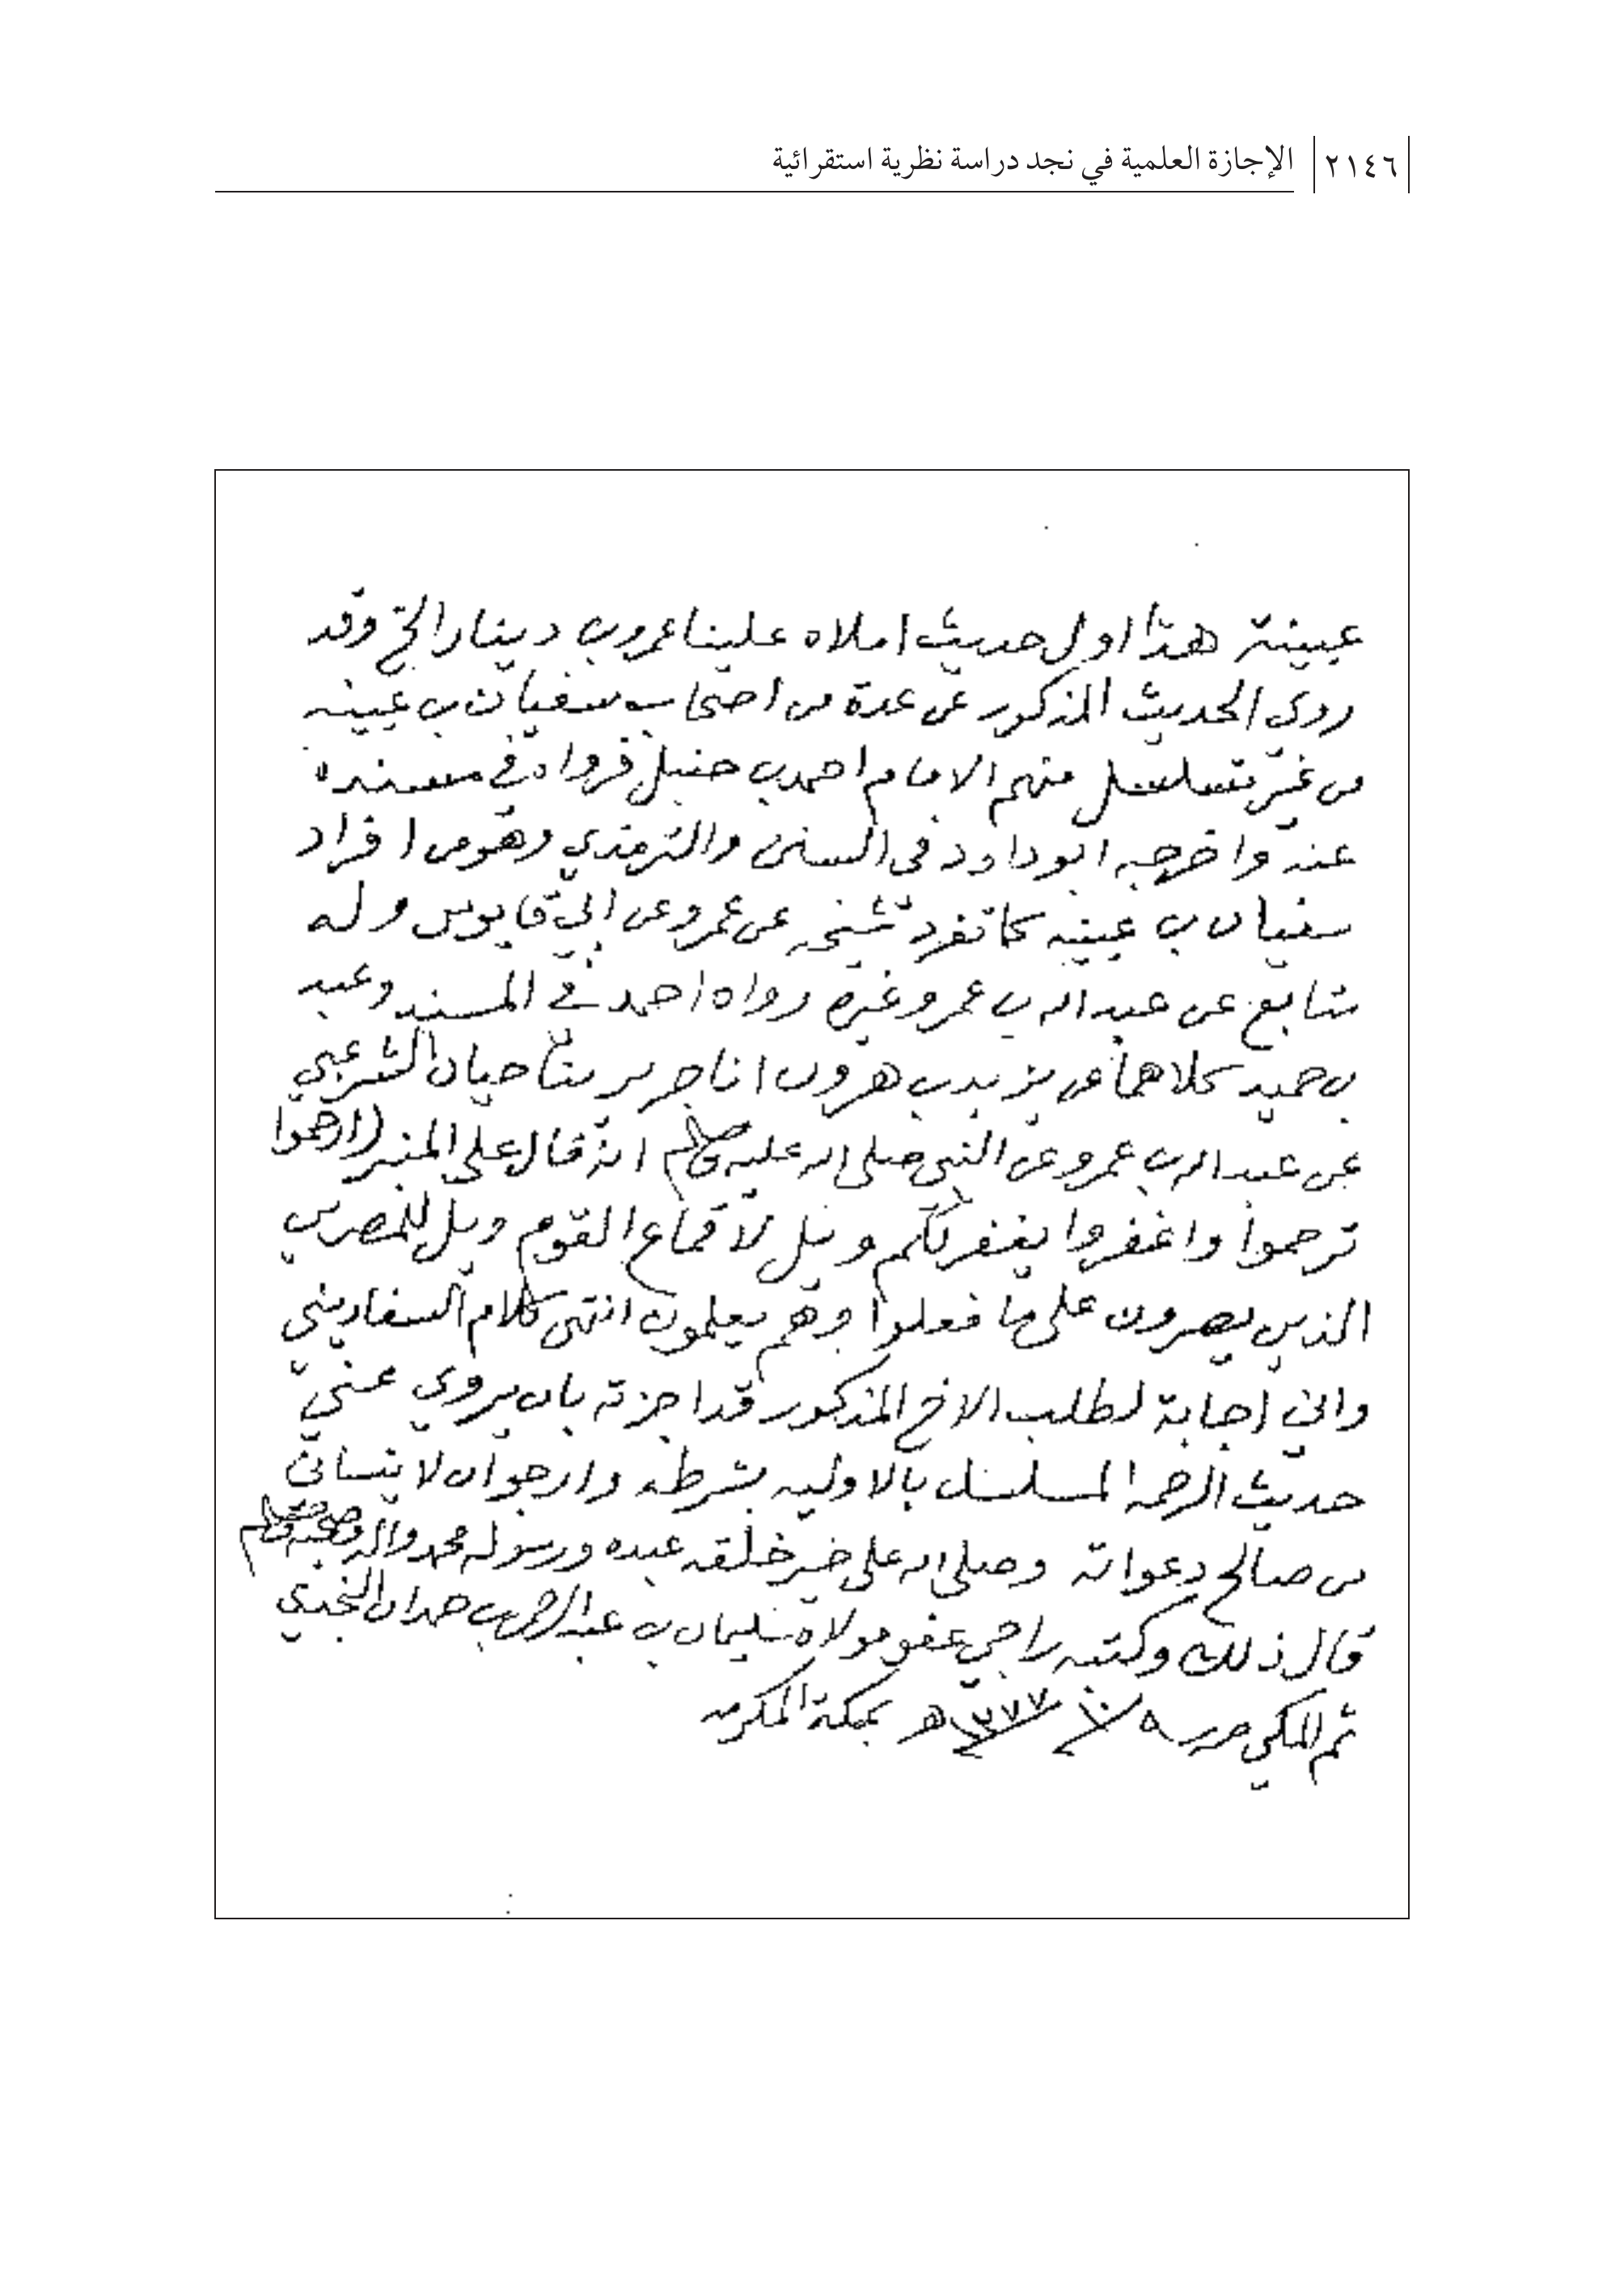 ٢١٤٦ الإجازة العلمية في نجد دراسة نظرية استقرائية
عيينة هذا اول حديث املاه علينا عمرو بن دينار الخ وقد
روى الحديث المذكور عن عدة من اصحاب سفيان بن عيينه
من غير تسلسل منهم الامام احمد بن حنبل فرواه في مسنده
عنه واخرجه ابو داود في السنن والترمذي وهو من افراد
سفيان بن عيينه كما تفرد شيخه عن عمرو عن ابي قابوس وله
متابع عن عبد الله بن عمرو غيره رواه احمد في المسند وعبد
بن حميد كلاهما عن يزيد بن هرون انا جرير ثنا حبان الشرعبي
عن عبد الله بن عمرو عن النبي صلى الله عليه وسلم انه قال على المنبر (ارحموا
ترحموا واغفروا يغفر لكم ويل لاقماع القوم ويل للمصرين
الذين يصرون على ما فعلوا وهم يعلمون انتهى كلام السفاريني
واني اجابة لطلب الاخ المذكور قد اجزته بان يروي عني
حديث الرحمه المسلسل بالاوليه بشرطه وارجوا ان لا ينساني
من صالح دعواته وصلى الله على خير خلقه عبده ورسوله محمد واله وصحبه وسلم
قال ذلك وكتبه راجي عفو مولاه سليمان بن عبد الرحمن بن حمدان النجدي
ثم المكي حرر ٠٠ ١٣٧٧ هـ بمكة المكرمه